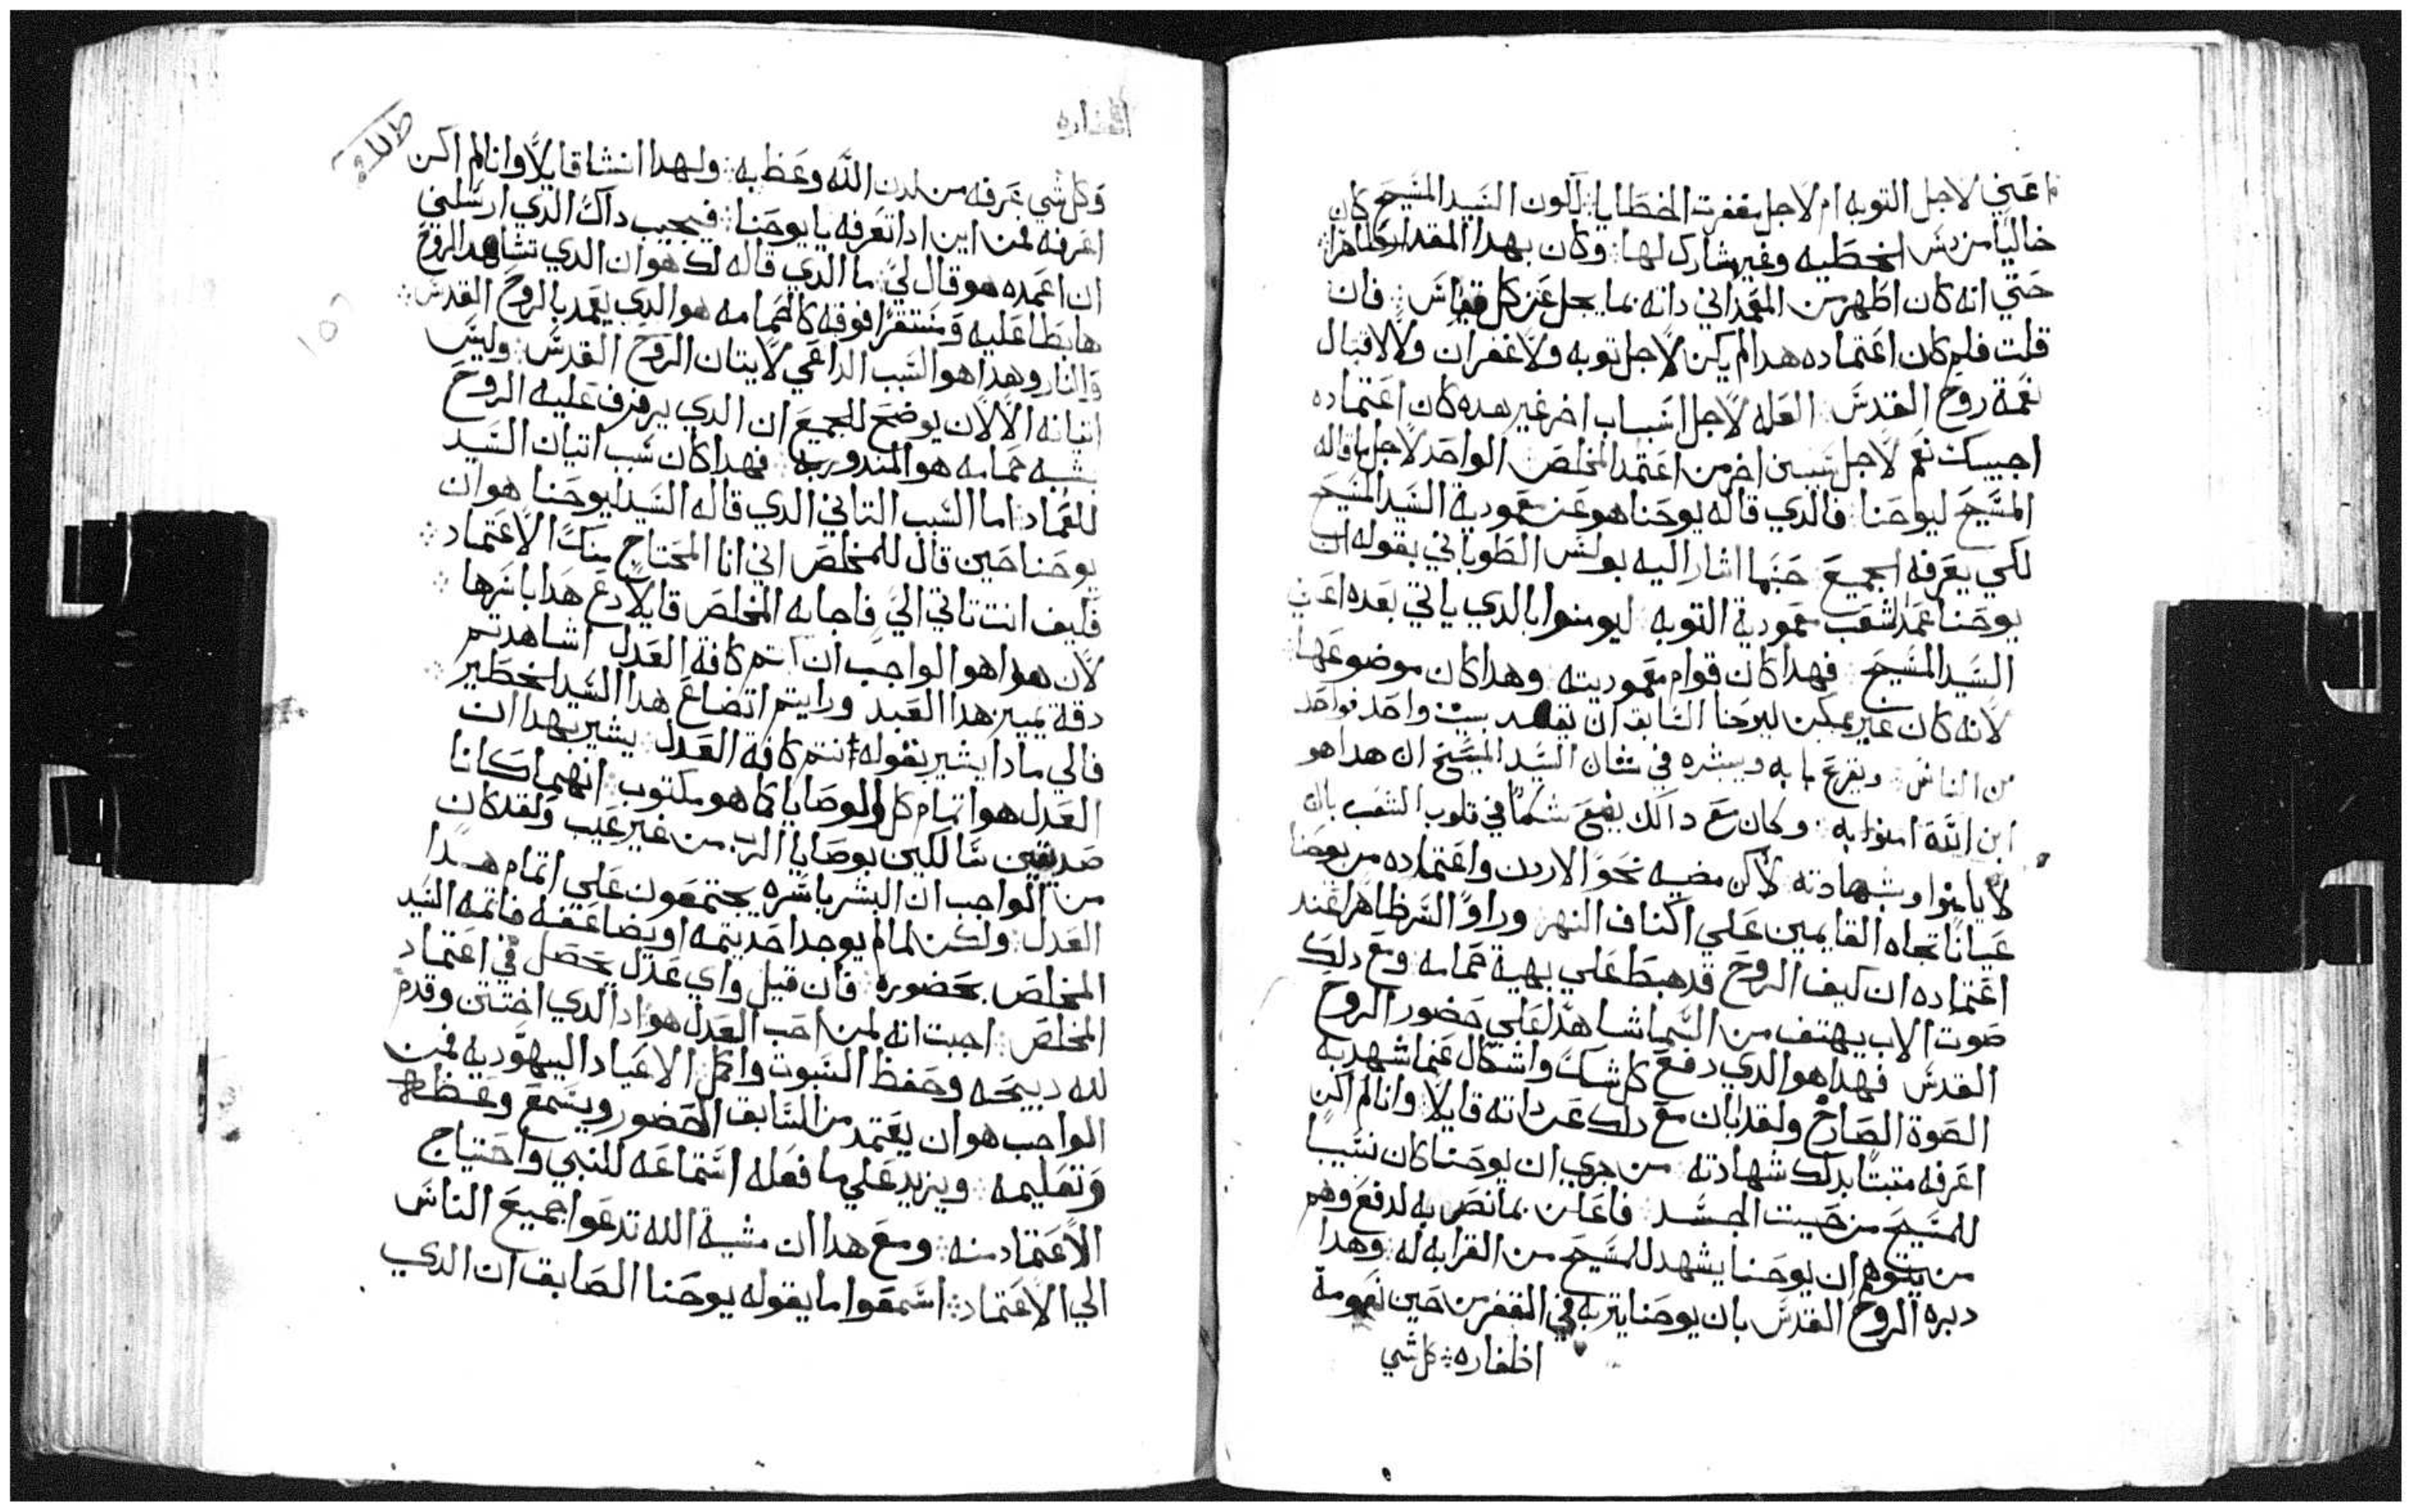 اعني لاجل التوبه ام لاجل مغفرت الخطايا: لكون السيد المسيح كان
خاليا من دنس الخطيه وغير مشارك لها: وكان بهدا المقدار طاهرا:
حتي انه كان اطهر من المعمداني داته بما يجل عن كل قياس: فان
قلت فلم كان اعتماده هدا لم يكن لاجل توبه ولا غفران ولا لاقتبال
نعمة روح القدس العله لاجل اسباب اخر غير هده كان اعتماده
اجيبك نعم لاجل سببين اخرين اعتمد المخلص: الواحد لاجل ما قاله
المسيح ليوحنا: فالدي قاله يوحنا هو عن معمودية السيد المسيح
لكي يعرفه الجميع حسبما اشار اليه بولس الطوباني بقوله ان
يوحنا عمد الشعب معمودية التوبه ليومنوا بالدي ياتي بعده اعني
السيد المسيح فهدا كان قوام معموديته وهدا كان موضوعها:
لانه كان غير ممكن ليوحنا السابق ان يقصد بيت واحد فواحد
من الناس: ويقرع بابه ويبشره في شان السيد المسيح ان هدا هو
ابن الله امنوا به: وكان مع دالك يضع شكا في قلوب الشعب بان
لا يامنوا وبشهادته لاكن مضيه نحو الاردن واعتماده من يوحنا
عيانا تجاه القايمين علي اكناف النهر وراو السر ظاهرا عند
اعتماده ان كيف الروح قد هبط علي بهية حمامه ومع دلك
صوت الاب يهتف من السما شاهدا علي حضور الروح
القدس فهدا هو الدي دفع كل شك واشكال عنما شهد به
الصوة الصارخ ولقد بان مع دلك عن داته قايلا وانا لم اكن
اعرفه متبتا بدلك شهادته من جري ان يوحنا كان نسيبا
للمسيح من حيت الجسد فاعلن بما نص به لدفع وهم
من يتوهم ان يوحنا يشهد للمسيح من القرابه له: وهدا
دبره الروح القدس بان يوحنا يتربه في القفر من حين نعومة
اظفاره: كل شي
اظفاره
وكل شي عرفه من لدن الله وعظ به: ولهدا انشا قايلا وانا لم اكن
اعرفه فمن اين ادا تعرفه يا يوحنا: فيجيب داك الدي ارسلني
ان اعمده هو قال لي: ما الدي قاله لك هو ان الدي تشاهد الروح
هابطا عليه ومستقرا فوقه كالحمامه هو الدي يعمد بالروح القدس:
والنار وهدا هو السبب الداعي لاتيان الروح القدس: وليس
اتيانه الا لان يوضح للجميع ان الدي يرفرف عليه الروح
بشبه حمامه هو المندور به: فهدا كان سبب اتيان السيد
للعماد: اما السبب التاني الدي قاله السيد ليوحنا هو ان
يوحنا حين قال للمخلص اني انا المحتاج منك الاعتماد:
فكيف انت تاتي الي فاجابه المخلص قايلا دع هدا باسرها:
لان هدا هو الواجب ان اتم كافة العدل اشاهدتم
دقة تمييز هدا العبد ورايتم اتضاع هدا السيد الخطير:
فالي مادا يشير بقوله انتم كافة العدل: يشير بهدا ان
العدل هو اتمام كل الوصايا كما هو مكتوب: انهما كانا
صديقين سالكين بوصايا الرب من غير عيب ولقد كان
من الواجب ان البشر باسره يجتمعون علي اتمام هدا
العدل: ولكن لما لم يوجد احد يتمه او يضاعفه فاتمه السيد
المخلص بحضوره: فان قيل واي عدل يحصل في اعتماد
المخلص: اجبت انه لمن احب العدل هو ادا الدي اختتن وقدم
لله دبيحه وحفظ السبوت واكمل الاعياد اليهوديه فمن
الواجب هو ان يعتمد من السابق الحضور ويسمع وعظه
وتعليمه: ويزيد علي ما فعله استماعه للنبي واحتياج
الاعتماد منه: ومع هدا ان مشية الله تدعوا جميع الناس
الي الاعتماد: اسمعوا ما يقوله يوحنا الصابق ان الدي